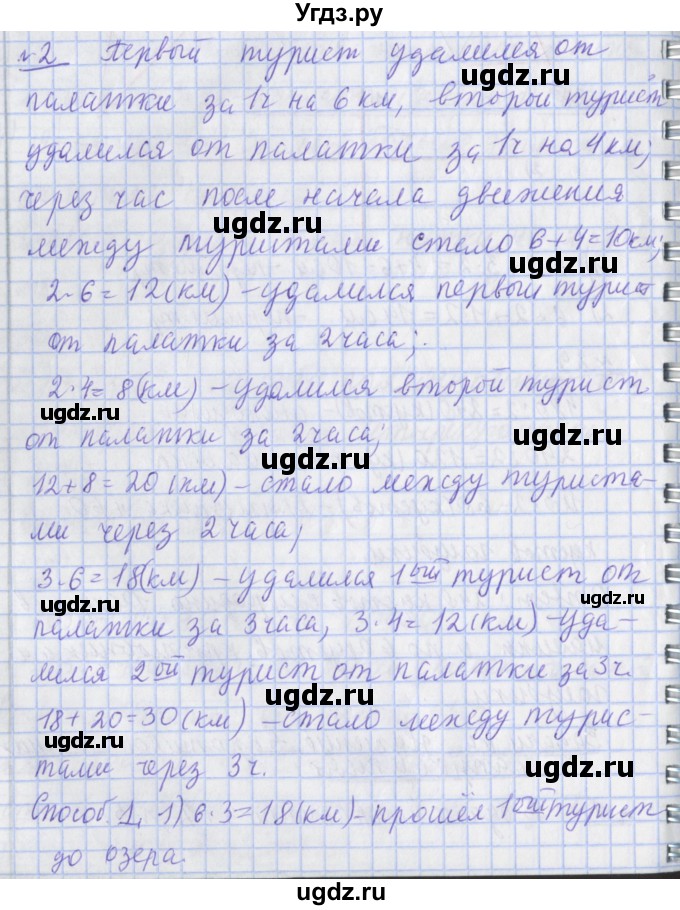 Угдз.ру
№2 Первый турист удалился от
ugdz.ru
палатки за 1ч на 6 км, второй турист
удалился от палатки за 1ч на 4км;
ugdz.ru
через час после начала движения
ugdz.ru
между туристами стало 6+4=10км;
ugdz.ru
2·6=12(км) – удалился первый турист
от палатки за 2часа;
ugdz.ru
2·4=8(км) – удалился второй турист
ugdz.ru
от палатки за 2часа;
ugdz.ru
12+8=20(км) – стало между туриста-
ugdz.ru
ми через 2часа;
3·6=18(км) – удалился 1ый турист от
ugdz.ru
ugdz.ru
палатки за 3часа, 3·4=12(км) – уда-
лился 2ой турист от палатки за 3ч.
ugdz.ru
18+20=30(км) – стало между турис-
ugdz.ru
тами через 3ч.
ugdz.ru
Способ 1. 1) 6·3=18(км) – прошёл 1ый турист
ugdz.ru
до озера.
ugdz.ru